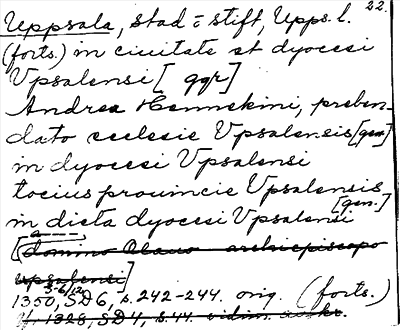 22.
Uppsala, stad o stift, Upps. l.
(forts.) in ciuitate et dyocesi
Vpsalensi [ggr]
Andrea Hennekini, preben-
dato ecclesie Vpsalensis [gen]
in dyocesi Vpsalensi
tocius prouincie Vpsalensis
[gen.]
in dicta dyocesi Vpsalensi
[domino Olauo archiepiscopo
upsalensi]
1350 3-6/12, SD6, s. 242-244. orig. (forts.)
1328, SD4, s. 44. vidim.